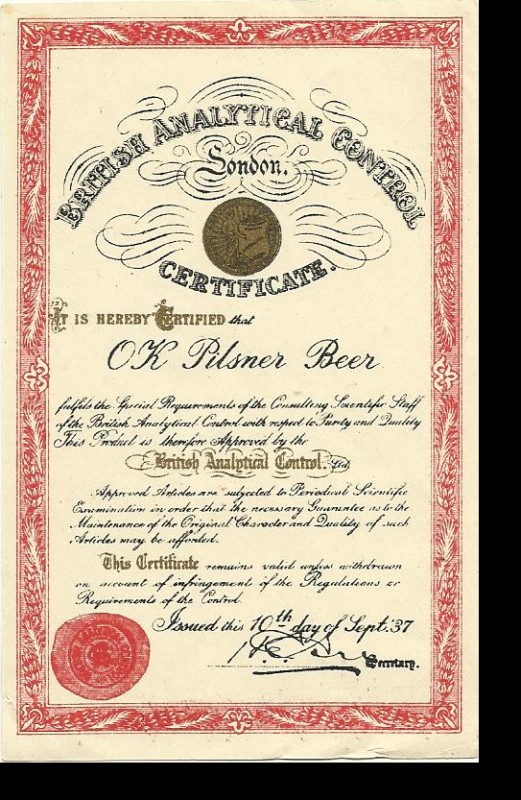 BRITISH ANALYTICAL CONTROL
London.
CERTIFICATE.
IT IS HEREBY CERTIFIED that
OK Pilsner Beer
fulfils the Special Requirements of the Consulting Scientific Staff
of the British Analytical Control with respect to Purity and Quality
This Product is therefore Approved by the
British Analytical Control. Ltd.
Approved Articles are subjected to Periodical Scientific
Examination in order that the necessary Guarantee as to the
Maintenance of the Original Character and Quality of such
Articles may be afforded.
This Certificate remains valid unless withdrawn
on account of infringement of the Regulations or
Requirements of the Control.
Issued this 10th day of Sept. 37
Secretary.